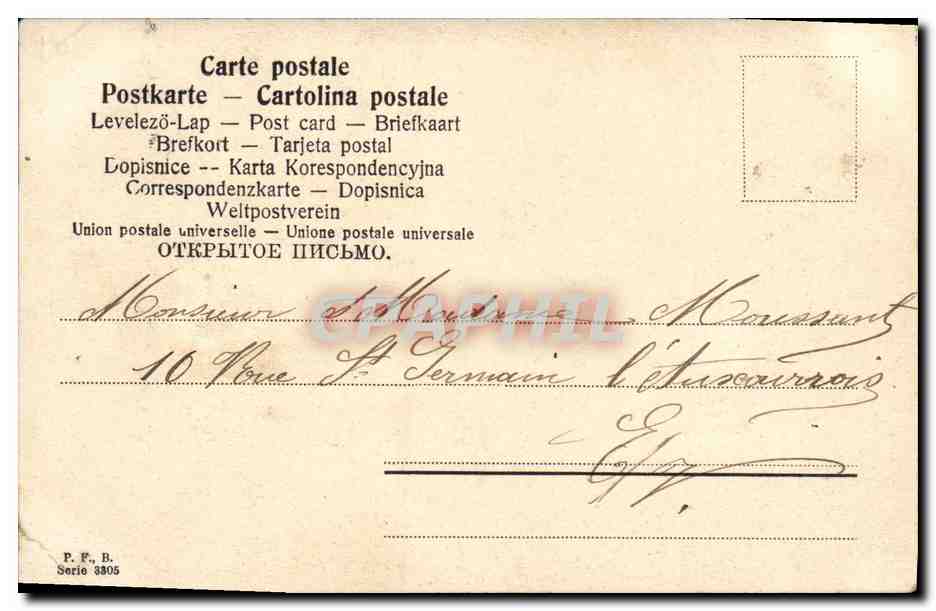 Carte postale
Postkarte — Cartolina postale
Levelező-Lap — Post card — Briefkaart
Brefkort — Tarjeta postal
Dopisnice -- Karta Korespondencyjna
Correspondenzkarte — Dopisnica
Weltpostverein
Union postale universelle — Unione postale universale
ОТКРЫТОЕ ПИСЬМО.
Monsieur & Madame Moussant
CPAPHIL
10 Rue St Germain l'Auxerrois
P. F., B.
Serie 3305